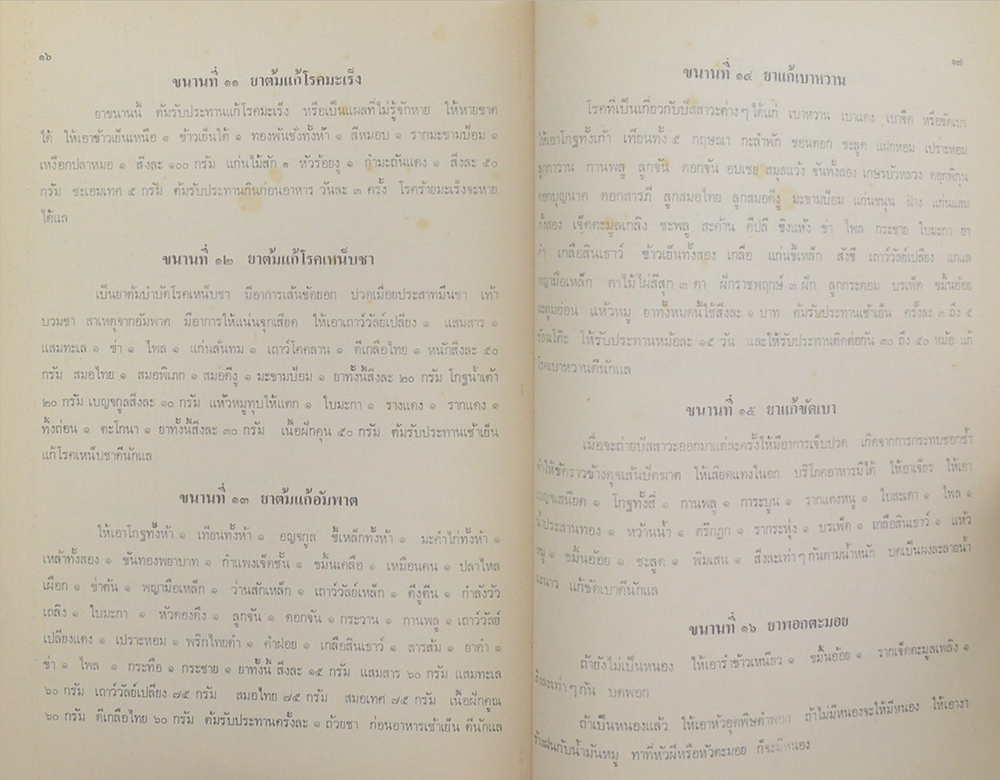 ๑๖
ขนานที่ ๑๑ ยาต้มแก้โรคมะเร็ง
ยาขนานนี้ ต้มรับประทานแก้โรคมะเร็ง หรือเป็นแผลที่ไม่รู้จักหาย ให้หายขาด
ได้ ให้เอาข้าวเย็นเหนือ ๑ ข้าวเย็นใต้ ๑ ทองพันชั่งทั้งห้า ๑ สีหมอบ ๑ รากมะขามป้อม ๑
เหงือกปลาหมอ ๑ สิ่งละ ๑๐๐ กรัม แก่นไม้สัก ๑ หัวร้อยงู ๑ กำมะถันแดง ๑ สิ่งละ ๕๐
กรัม ชะเอมเทศ ๕ กรัม ต้มรับประทานกินก่อนอาหาร วันละ ๓ ครั้ง โรคร้ายมะเร็งจะหาย
ได้แล
ขนานที่ ๑๒ ยาต้มแก้โรคเหน็บชา
เป็นยาต้มบำบัดโรคเหน็บชา มีอาการเส้นขัดยอก ปวดเมื่อยประสาทมึนชา เท้า
บวมชา สาเหตุจากอัมพาต มีอาการให้แน่นจุกเสียด ให้เอาเถาวัลย์เปลียง ๑ แสมสาร ๑
แสมทะเล ๑ ข่า ๑ ไพล ๑ แก่นลั่นทม ๑ เถาวโคคลาน ๑ ดีเกลือไทย ๑ หนักสิ่งละ ๕๐
กรัม สมอไทย ๑ สมอพิเภก ๑ สมอดีงู ๑ มะขามป้อม ๑ ยาทั้งนี้สิ่งละ ๒๐ กรัม โกฐน้ำเต้า
๒๐ กรัม เบญจกูลสิ่งละ ๑๐ กรัม แห้วหมูทุบให้แตก ๑ ใบมะกา ๑ รางแดง ๑ รากแดง ๑
ทิ้งถ่อน ๑ ตะโกนา ๑ ยาทั้งนี้สิ่งละ ๓๐ กรัม เนื้อฝักคูน ๕๐ กรัม ต้มรับประทานเช้าเย็น
แก้โรคเหน็บชาดีนักแล
ขนานที่ ๑๓ ยาต้มแก้อัมพาต
ให้เอาโกฐทั้งห้า ๑ เทียนทั้งห้า ๑ อญจกูล ขี้เหล็กทั้งห้า ๑ มะคำไก่ทั้งห้า ๑
เหล้าทั้งสอง ๑ ขันทองพยาบาท ๑ กำแพงเจ็ดชั้น ๑ ขมิ้นเครือ ๑ เหมือนคน ๑ ปลาไหล
เผือก ๑ ข่าต้น ๑ พญามือเหล็ก ๑ ว่านสักเหล็ก ๑ เถาวัลย์เหล็ก ๑ ดีงูต้น ๑ กำลังวัว
เถลิง ๑ ใบมะกา ๑ หัวดองดึง ๑ ลูกจัน ๑ ดอกจัน ๑ กระวาน ๑ กานพลู ๑ เถาวัลย์
เปลียงแดง ๑ เปราะหอม ๑ พริกไทยดำ ๑ คำฝอย ๑ เกลือสินเธาว์ ๑ สารส้ม ๑ ยาดำ ๑
ข่า ๑ ไพล ๑ กระทือ ๑ กระชาย ๑ ยาทั้งนี้ สิ่งละ ๑๕ กรัม แสมสาร ๖๐ กรัม แสมทะเล
๖๐ กรัม เถาวัลย์เปลียง ๗๕ กรัม สมอไทย ๗๕ กรัม สมอเทศ ๗๕ กรัม เนื้อฝักคูณ
๖๐ กรัม ดีเกลือไทย ๖๐ กรัม ต้มรับประทานครั้งละ ๑ ถ้วยชา ก่อนอาหารเช้าเย็น ดีนักแล
๑๗
ขนานที่ ๑๔ ยาแก้เบาหวาน
โรคที่เป็นเกี่ยวกับปัสสาวะต่างๆ ได้แก่ เบาหวาน เบาแดง เบาขัด หรือขัดเบา
ให้เอาโกฐทั้งเก้า เทียนทั้ง ๕ กฤษณา กะลำพัก ขอนดอก ชะลูด แฝกหอม เปราะหอม
ลูกกาวาน กานพลู ลูกจันี้ ดอกจัน อบเชย สมุลแว้ง จันทั้งสอง เกษรบัวหลวง ดอกพิกุล
ดอกบุญนาค ดอกสารภี ลูกสมอไทย ลูกสมอดีงู มะขามป้อม แก่นขนุน ฝาง แก่นแสม
ทั้งสอง เจ็ดตะมูลเกลิง ชะพลู สะค้าน ดีปลี ขิงแห้ง ข่า ไพล กระชาย ใบมะกา ยา
ดำ เกลือสินเธาว์ ข้าวเย็นทั้งสอง เกลือ แก่นขี้เหล็ก สังขี เถาวัลย์เปลียง แกแล
พญามือเหล็ก ตาไม้ไผ่สีสุก ๓ ตา ฝักราชพฤกษ์ ๓ ฝัก ลูกกระดอม บรเพ็ด ขมิ้นอ้อย
มะตูมอ่อน แห้วหมู ยาทั้งหมดนี้ใช้สิ่งละ ๑ บาท ต้มรับประทานเช้าเย็น ครั้งละ ๓ ถึง ๕
ช้อนโต๊ะ ให้รับประทานหม้อละ ๑๕ วัน และให้รับประทานติดต่อกัน ๓๐ ถึง ๕๐ หม้อ แก้
โรคเบาหวานดีนักแล
ขนานที่ ๑๕ ยาแก้ขัดเบา
เมื่อจะถ่ายปัสสาวะออกมาแต่ละครั้งให้มีอาการเจ็บปวด เกิดจากการกระทบชอกช้ำ
ทำให้ขัดราวข้างดุจเส้นปัดฆาต ให้เสียดแทงในอก บริโภคอาหารมิได้ ให้อาเจียร ให้เอา
เบญจเสนียด ๑ โกฐทั้งสี่ ๑ กานพลู ๑ การะบูน ๑ รากแตงหนู ๑ ใบสะเดา ๑ ไพล ๑
น้ำประสานทอง ๑ หว้านน้ำ ๑ ตรีกฏุก ๑ รากระหุ่ง ๑ บรเพ็ด ๑ เกลือสินเธาว์ ๑ แห้ว
หมู ๑ ขมิ้นอ้อย ๑ ชะลูด ๑ พิมเสน ๑ สิ่งละเท่าๆ กันตามน้ำหนัก บดเป็นผงละลายน้ำ
มะนาว แก้ขัดเบาดีนักแล
ขนานที่ ๑๖ ยาพอกตะมอย
ถ้ายังไม่เป็นหนอง ให้เอารำข้าวเหนียว ๑ ขมิ้นอ้อย ๑ รากเจ็ดตะมูลเพลิง ๑
สิ่งละเท่าๆ กัน บดพอก
ถ้าเป็นหนองแล้ว ให้เอาหัวอุตพิษตำพอก ถ้าไม่มีหนองจะให้มีหนอง ให้เอางา
ช้างฝนกับน้ำมันหมู ทาที่หัวฝีหรือหัวตะมอย ก็จะมีหนอง